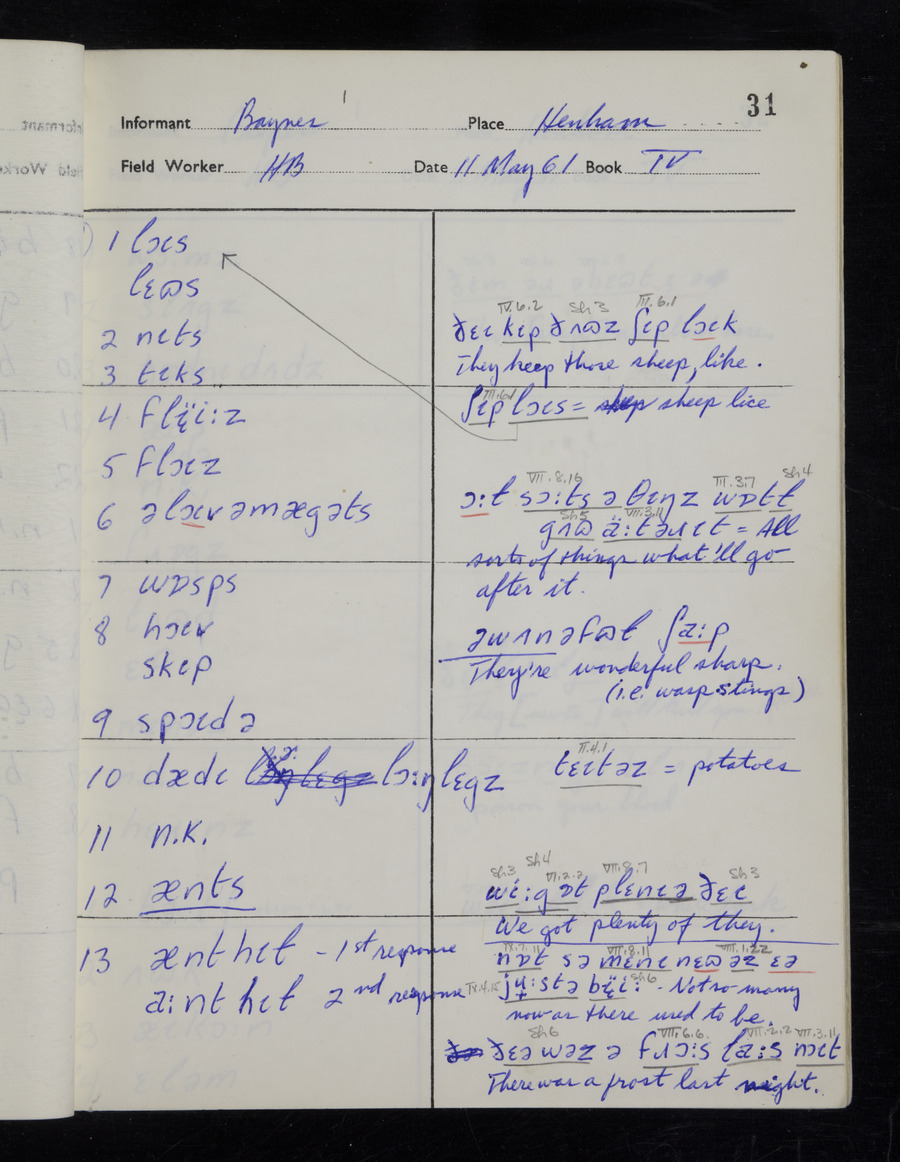 31
Informant Baynes Place Henham
Field Worker HB Date 11 May 61 Book IV
1 lɔɪs
lɛʊs
2 nɪts
3 tɪks
4 flï̞i:z
5 flɔɪz
6 əlɔɪvəmægəts
7 wɒsps
8 hɔɪv
skɛp
9 spɔɪdə
10 dædɪ lɔ:ŋlɛgz
11 n.k.
12 ænts
13 ænthɪt - 1st response
a:nthɪt 2nd response
IV.6.2 Sh 3 III.6.1
ðɛɪ kɪp ðʌʊz ʃɪp lɔɪk
They keep those sheep, like.
III.6.1
ʃɪp lɔɪs = sheep lice
VII.8.16 III.3.7 Sh 4
ɔ:ł sɔ:ts ə θɪŋz wɒtł
Sh 5 VII.3.11
gʌʊ ä:təɹɪt = All
sorts of things what'll go
after it.
əwʌnəfʊł ʃa:p
They're wonderful sharp.
(i.e. wasp stings)
II.4.1
tɛɪtəz = potatoes
Sh 3 Sh 4 VI.2.2 VII.8.7 Sh 3
wɪ:gɒt plɛnɪə ðɛɪ
We got plenty of they.
IX.7.11 VII.8.11 VIII.1.22
nɒt sə mɛnɪ nɛʊəz ɛə
IX.4.15 Sh 6
jʉ:stə bï̞i: - Not so many
now as there used to be.
Sh 6 VII.6.6. VII.2.2 VII.3.11
ðɛəwəz ə fɹɔ:s la:s nɔɪt
There was a frost last night.